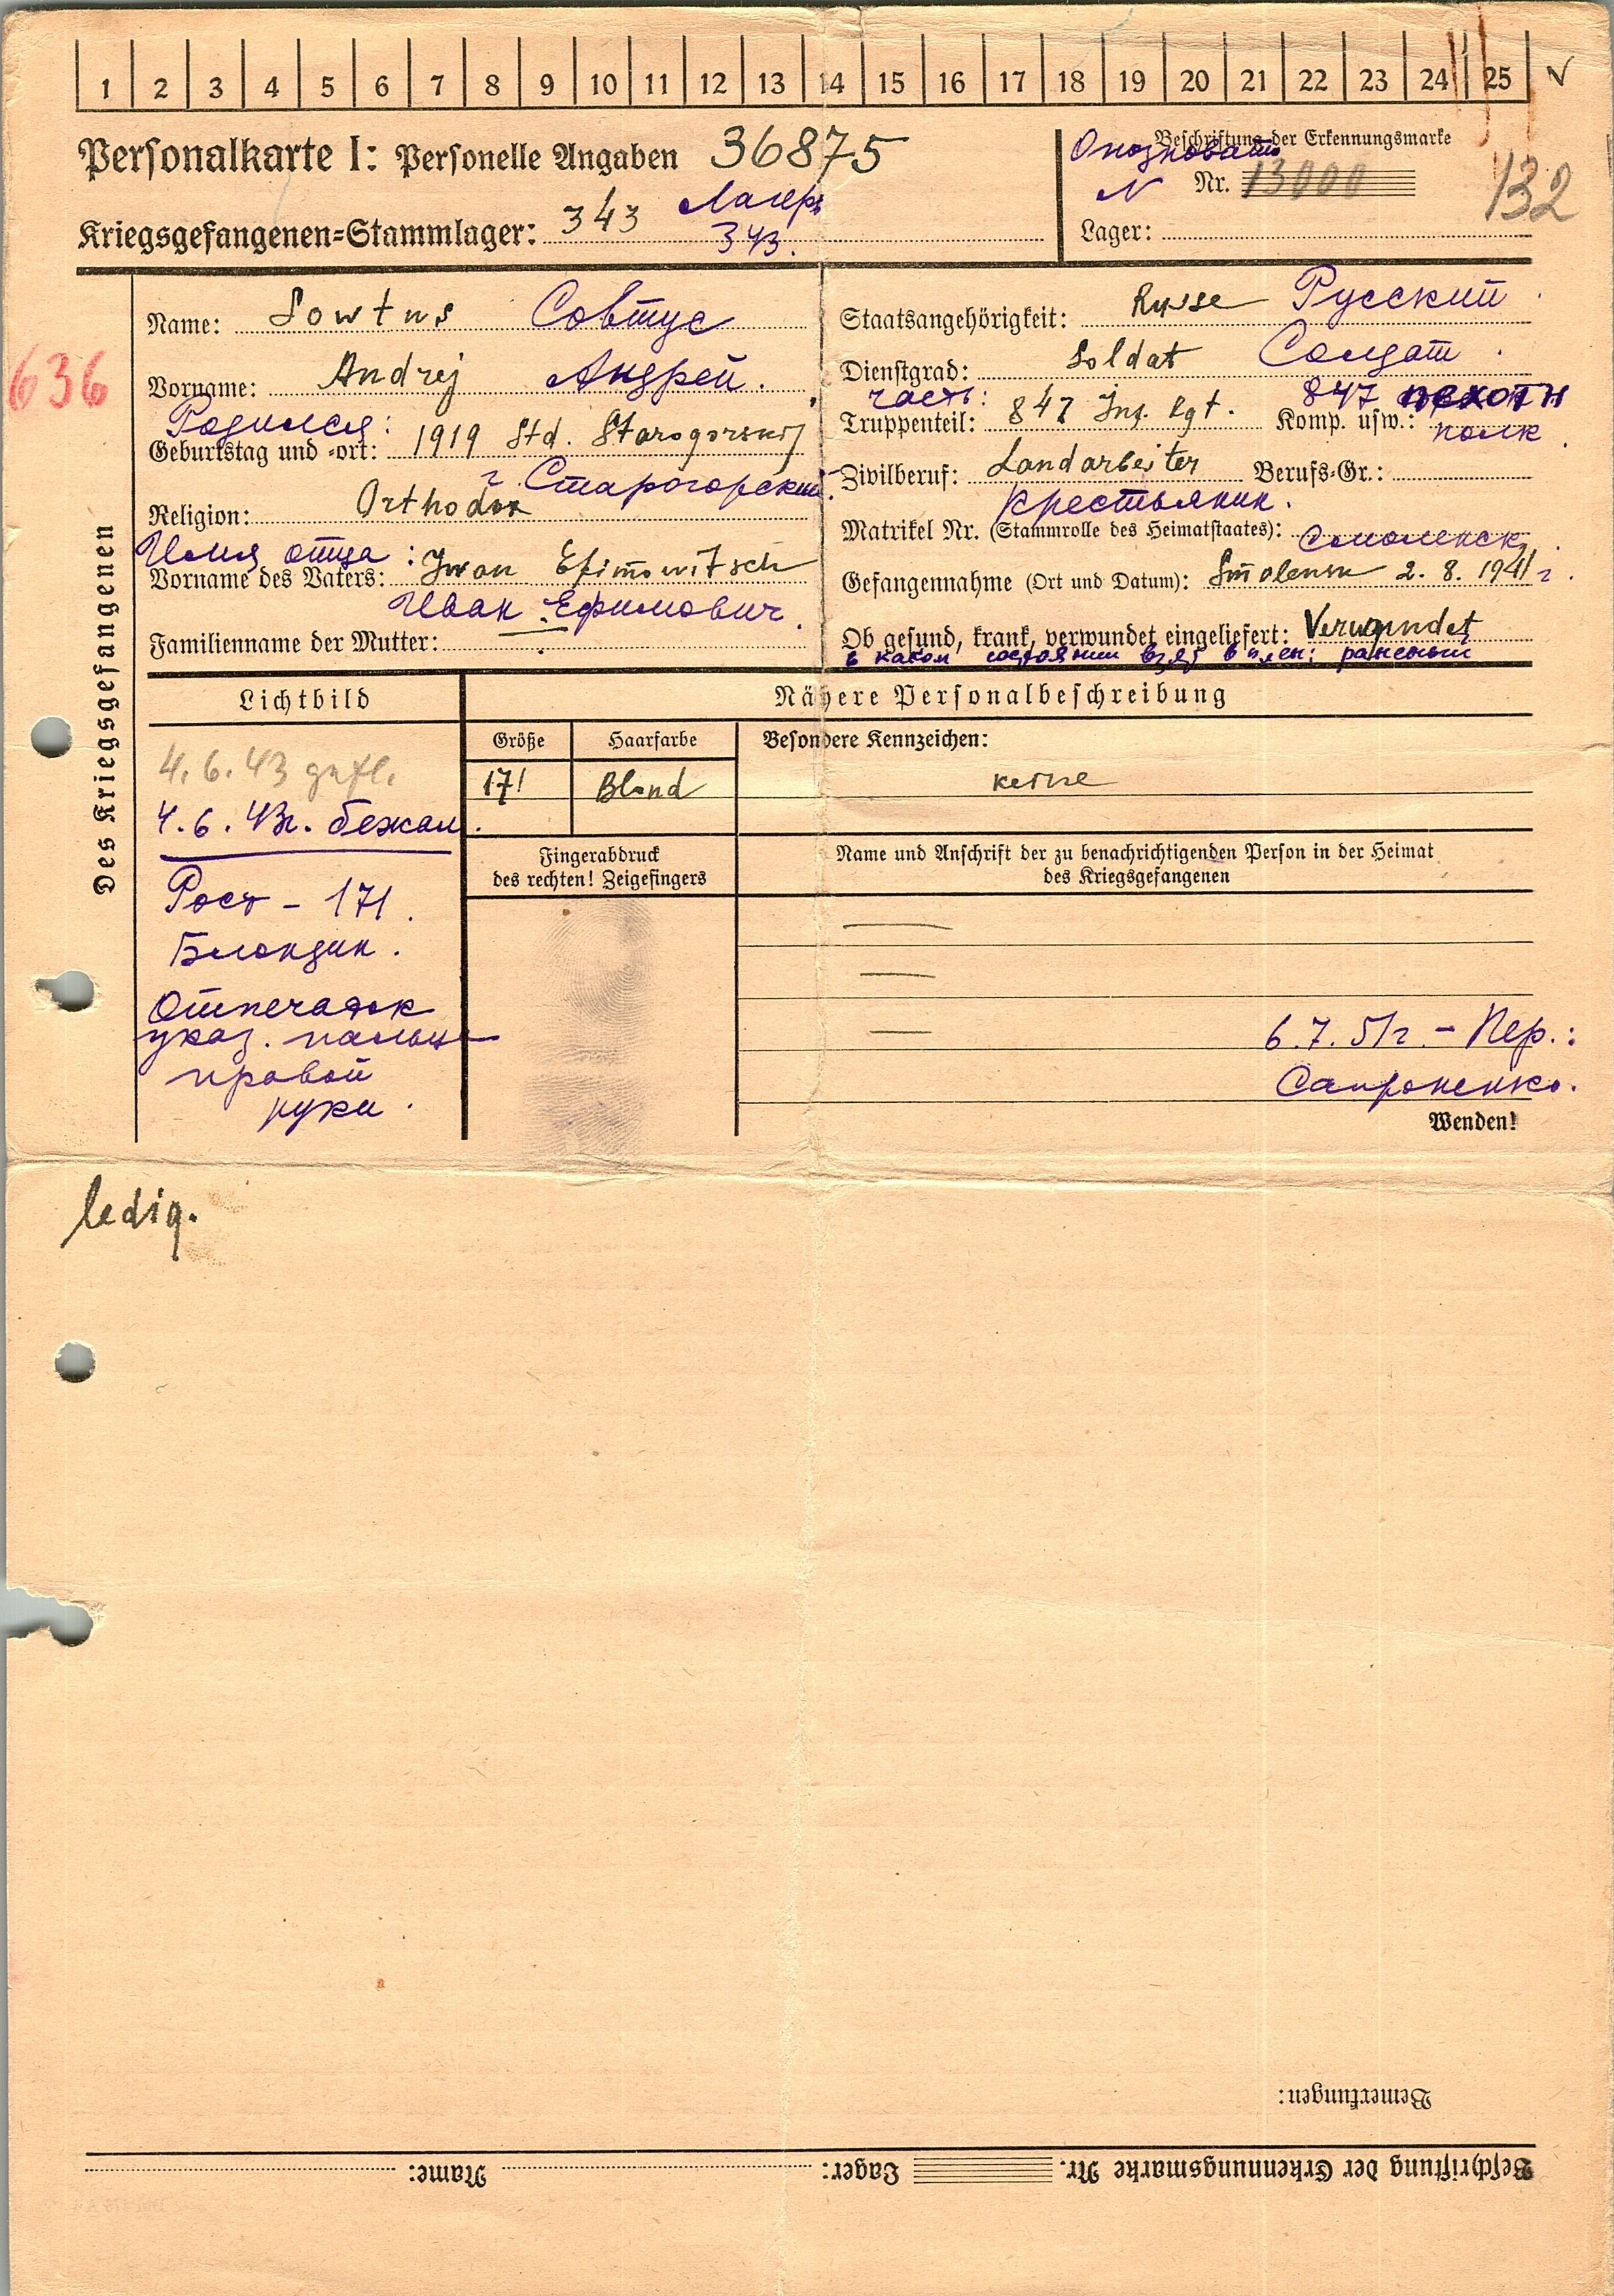 1 2 3 4 5 6 7 8 9 10 11 12 13 14 15 16 17 18 19 20 21 22 23 24 25
Personalkarte I: Personelle Angaben 36875
Beschriftung der Erkennungsmarke
N Nr. 13000
132
Kriegsgefangenen=Stammlager: 343 Лагерь
343.
Lager:
Des Kriegsgefangenen
636
Name: Sowtus Совтус
Vorname: Andrej Андрей.
Родился:
Geburtstag und =ort: 1919 Std. Starogorskij
г. Старогорский
Religion: Orthodox
Имя отца:
Vorname des Vaters: Iwan Efimowitsch
Иван Ефимович.
Familienname der Mutter:
Staatsangehörigkeit: Russe Русский
Dienstgrad: Soldat Солдат.
часть:
Truppenteil: 847 Inf. Rgt. Komp. usw.: 847 пехотн
полк.
Zivilberuf: Landarbeiter Berufs=Gr.:
крестьянин.
Matrikel Nr. (Stammrolle des Heimatstaates):
Смоленск
Gefangennahme (Ort und Datum): Smolensk 2. 8. 1941 г.
Ob gesund, krank, verwundet eingeliefert: Verwundet
в каком состоянии взят в плен: раненый
Lichtbild
Nähere Personalbeschreibung
Größe Haarfarbe Besondere Kennzeichen:
171 Blond keine
4. 6. 43 gefl.
4. 6. 43г. бежал.
Рост - 171.
Блондин.
Отпечаток
указ. пальца
правой
руки.
Fingerabdruck
des rechten! Zeigefingers
Name und Anschrift der zu benachrichtigenden Person in der Heimat
des Kriegsgefangenen
6. 7. 51г. - Пер.:
Сапроненко.
Wenden!
ledig.
Bemerkungen:
Beschriftung der Erkennungsmarke Nr. Lager: Name: